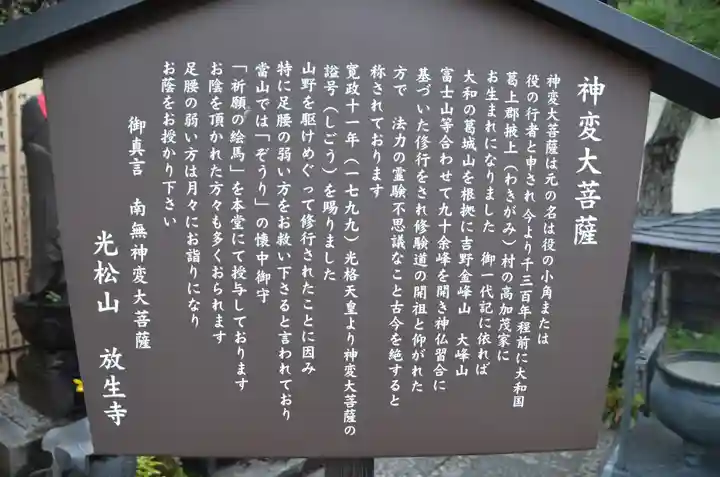 神変大菩薩
神変大菩薩は元の名は役の小角または
役の行者と申され 今より千三百年程前に大和国
葛上郡掖上(わきがみ)村の高加茂家に
お生まれになりました 御一代記に依れば
大和の葛城山を根拠に吉野金峰山 大峰山
富士山等合わせて九十余峰を開き神仏習合に
基づいた修行をされ修験道の開祖と仰がれた
方で 法力の霊験不思議なこと古今を絶すると
称されております
寛政十一年(一七九九)光格天皇より神変大菩薩の
諡号(しごう)を賜りました
山野を駆けめぐって修行されたことに因み
特に足腰の弱い方をお救い下さると言われており
當山では「ぞうり」の懐中御守
「祈願の絵馬」を本堂にて授与しております
お陰を頂かれた方々も多くおられます
足腰の弱い方は月々にお詣りになり
お蔭をお授かり下さい
御真言 南無神変大菩薩
光松山 放生寺